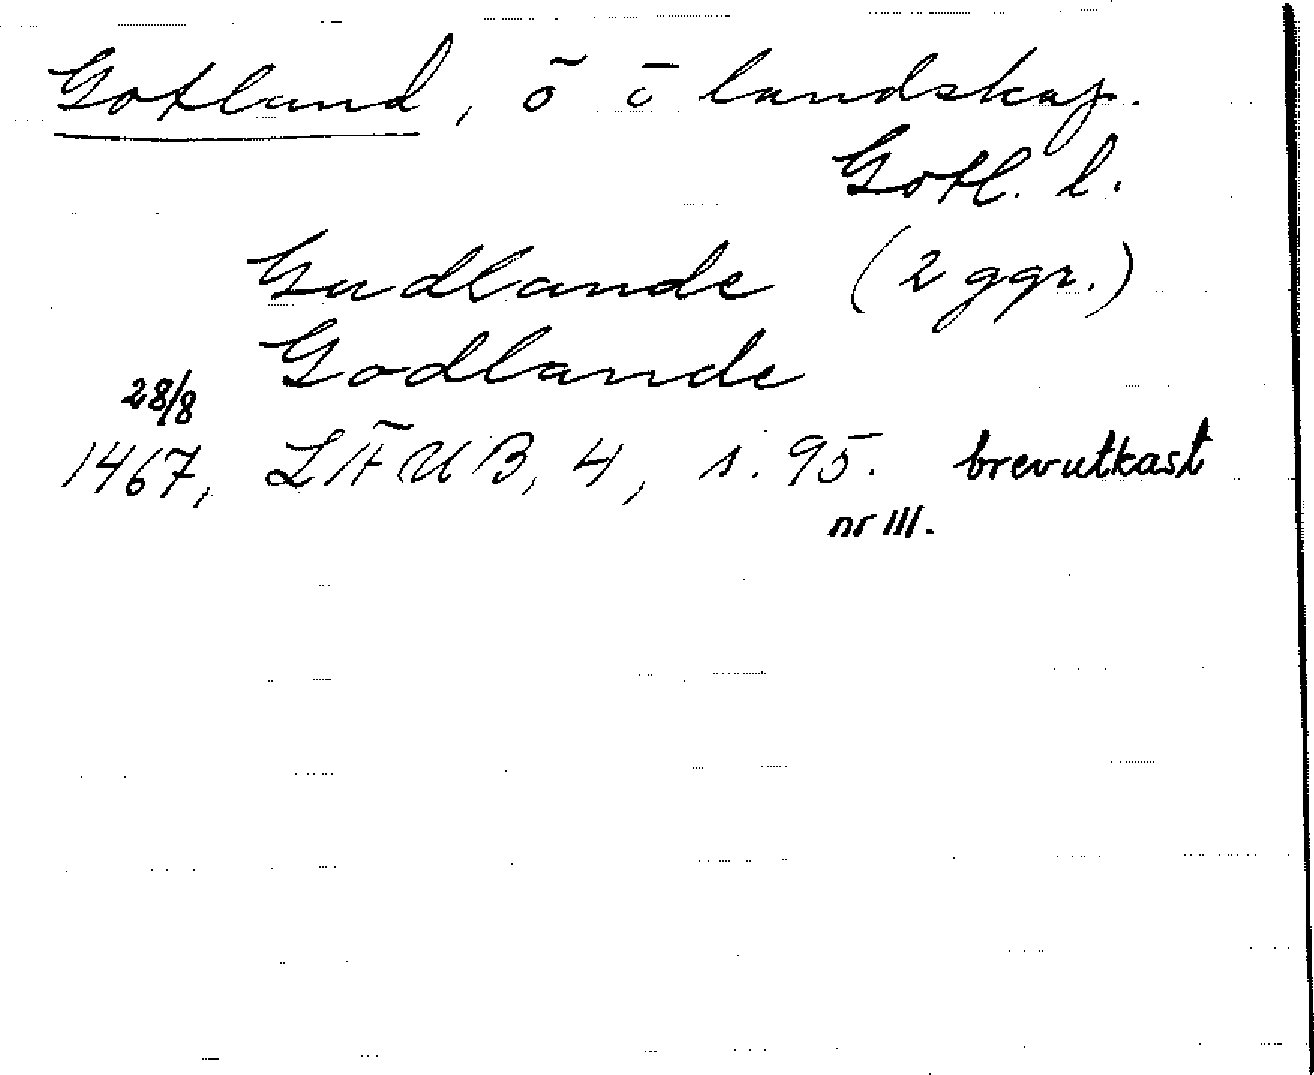 Gotland, ö ö landskap.
Gotl. l.
Gudlande (2 ggr.)
Godlande
28/8
1467, LFUB, 4, s. 95. brevutkast
nr III.